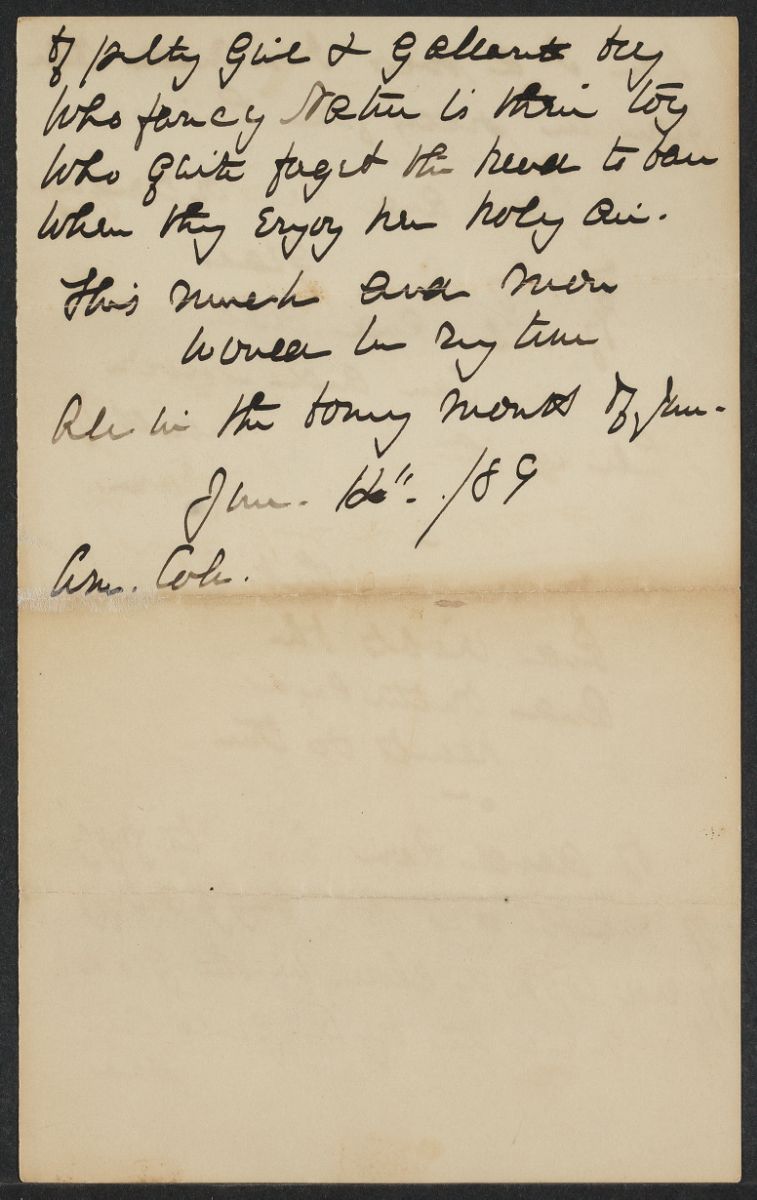 of pretty Girl & Gallant boy
Who fancy Nature is their toy
Who quite forget the head to bare
When they Enjoy her holy air.
This much and more
would be my tune
All in the bonny month of June.
June. 14". /89
Am. Col.